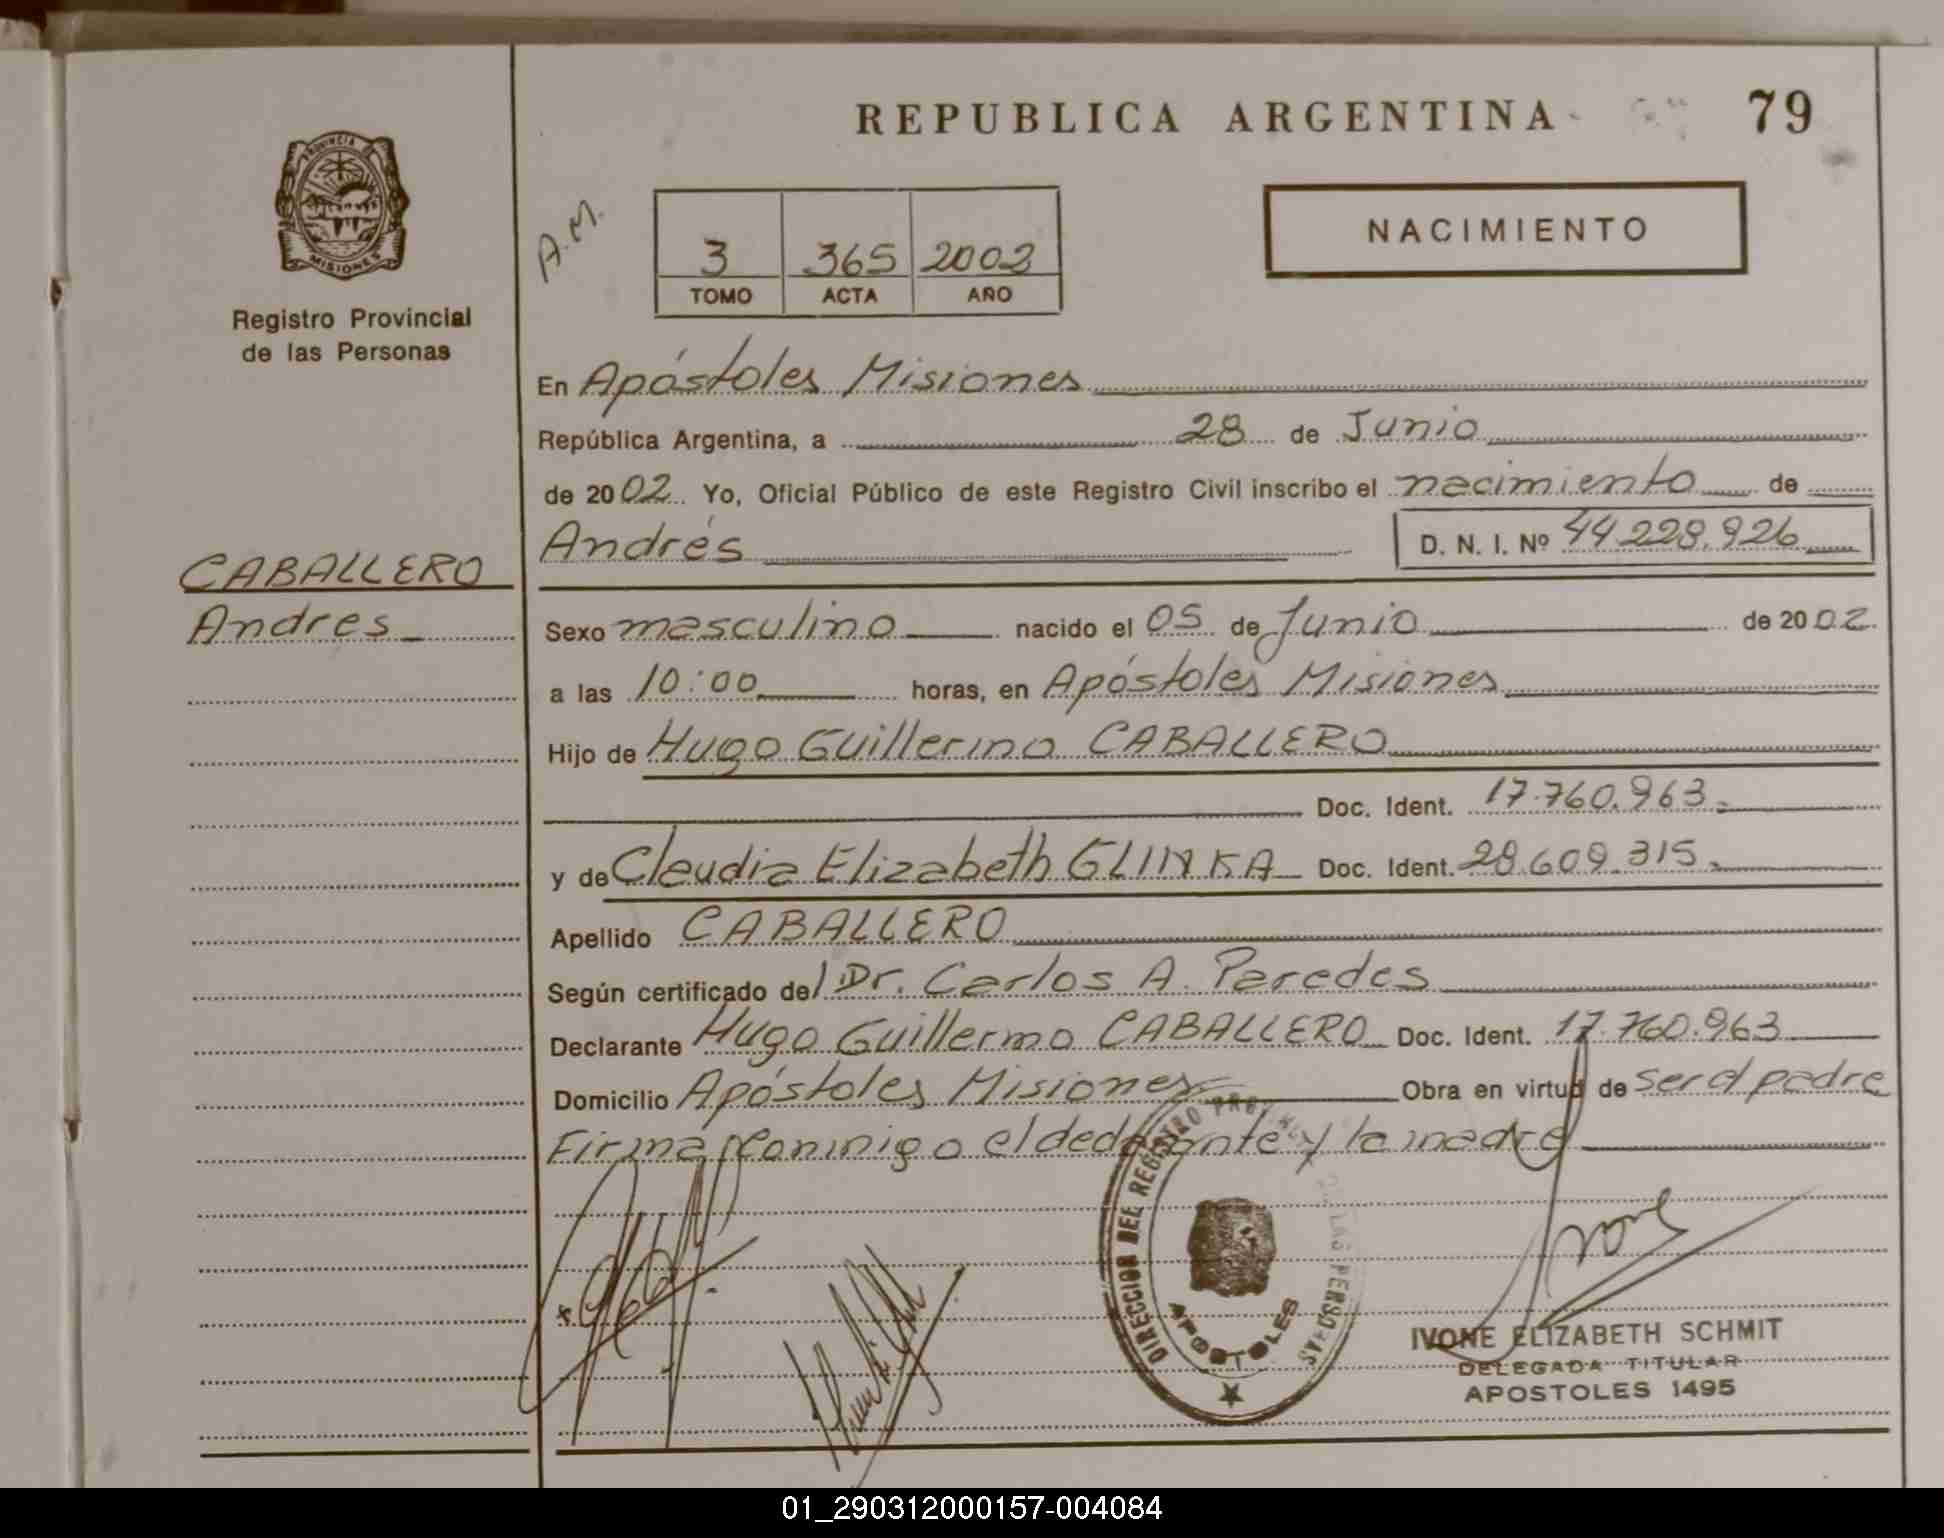 REPUBLICA ARGENTINA
79
PROVINCIA DE
MISIONES
Registro Provincial
de las Personas
A.M.
3 365 2002
TOMO ACTA AÑO
NACIMIENTO
En Apóstoles Misiones
República Argentina, a 28 de Junio
de 2002 Yo, Oficial Público de este Registro Civil inscribo el nacimiento de
Andrés D. N. I. Nº 44 228.926
CABALLERO
Andres
Sexo masculino nacido el 05 de Junio de 2002
a las 10:00 horas, en Apóstoles Misiones
Hijo de Hugo Guillermo CABALLERO
Doc. Ident. 17.760.963
y de Claudia Elizabeth GLINKA Doc. Ident. 28.609.315
Apellido CABALLERO
Según certificado del Dr. Carlos A. Paredes
Declarante Hugo Guillermo CABALLERO Doc. Ident. 17.760.963
Domicilio Apóstoles Misiones Obra en virtud de ser el padre
Firma conmigo el declarante y la madre
DIRECCION DEL REGISTRO PROVINCIAL DE LAS PERSONAS
APOSTOLES
IVONE ELIZABETH SCHMIT
DELEGADA TITULAR
APOSTOLES 1495
01_290312000157-004084